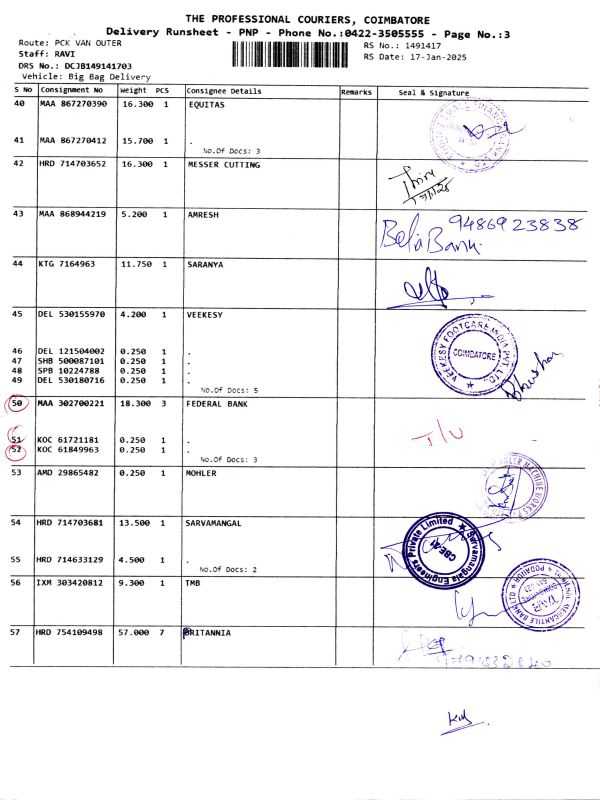 THE PROFESSIONAL COURIERS, COIMBATORE
Delivery Runsheet - PNP - Phone No.:0422-3505555 - Page No.:3
Route: PCK VAN OUTER
RS No.: 1491417
Staff: RAVI
RS Date: 17-Jan-2025
DRS No.: DCJB149141703
Vehicle: Big Bag Delivery
S No Consignment No Weight PCS Consignee Details Remarks Seal & Signature
40 MAA 867270390 16.300 1 EQUITAS
41 MAA 867270412 15.700 1 .
No.Of Docs: 3
42 HRD 714703652 16.300 1 MESSER CUTTING
43 MAA 868944219 5.200 1 AMRESH
9486923838
Bela Bank.
44 KTG 7164963 11.750 1 SARANYA
45 DEL 530155970 4.200 1 VEEKESY
VEEKESY FOOTCARE INDIA PVT. LTD.
COIMBATORE
Bhushan
46 DEL 121504002 0.250 1 .
47 SHB 500087101 0.250 1 .
48 SPB 10224788 0.250 1 .
49 DEL 530180716 0.250 1 .
No.Of Docs: 5
50 MAA 302700221 18.300 3 FEDERAL BANK
51 KOC 61721181 0.250 1 .
52 KOC 61849963 0.250 1 .
No.Of Docs: 3
53 AMD 29865482 0.250 1 MOHLER
MOHLER MACHINE WORKS
54 HRD 714703681 13.500 1 SARVAMANGAL
Sarvamangala Engineers Private Limited
CBE-21
55 HRD 714633129 4.500 1 .
No.Of Docs: 2
56 IXM 303420812 9.300 1 TMB
TAMILNAD MERCANTILE BANK LTD
PODANUR
57 HRD 754109498 57.000 7 BRITANNIA